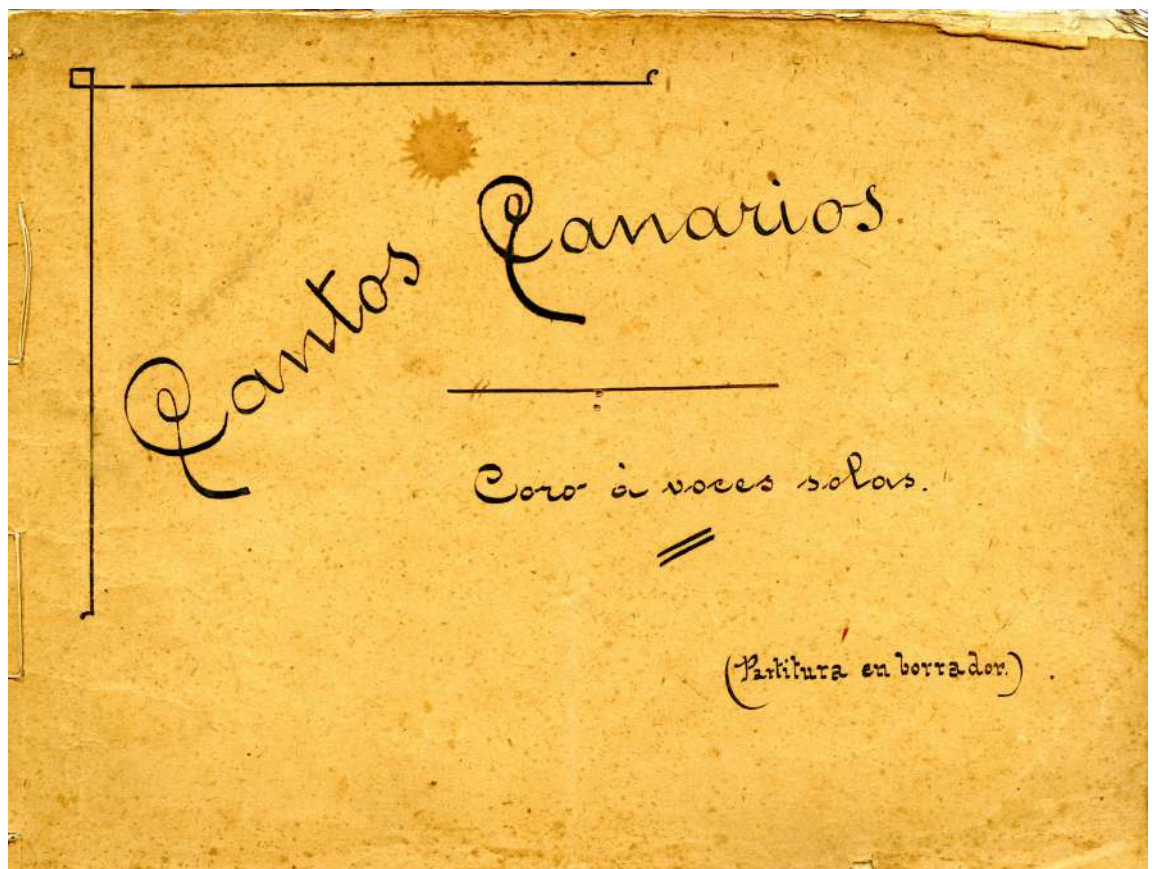 Cantos Canarios
Coro à voces solas.
(Partitura en borrador.).